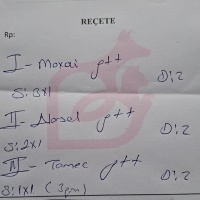 REÇETE
Rp:
I - Moxai ptt D:2
S: 3x1
II - Norsel ptt D:2
S: 2x1
III - Tamec ptt D:2
S: 1x1 (3pm)